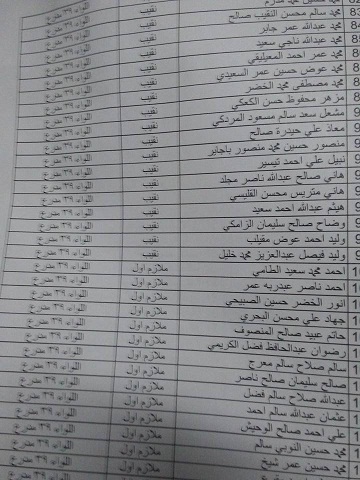 محمد سالم محسن النقيب صالح نقيب اللواء ٣٩ مدرع
محمد عبدالله عمر جابر نقيب اللواء ٣٩ مدرع
محمد عبدالله ناجي سعيد نقيب اللواء ٣٩ مدرع
محمد عمر احمد المعيليقي نقيب اللواء ٣٩ مدرع
محمد عوض حسين عمر السعيدي نقيب اللواء ٣٩ مدرع
محمد مصطفى محمد الخضر نقيب اللواء ٣٩ مدرع
مزهر محفوظ حسن الكعكي نقيب اللواء ٣٩ مدرع
مشعل سعد سالم مسعود المردكي نقيب اللواء ٣٩ مدرع
معاذ علي حيدرة صالح نقيب اللواء ٣٩ مدرع
منصور حسين محمد منصور باجابر نقيب اللواء ٣٩ مدرع
نبيل علي احمد تيسير نقيب اللواء ٣٩ مدرع
هاني صالح عبدالله ناصر مجلد نقيب اللواء ٣٩ مدرع
هاني متريس محسن القليسي نقيب اللواء ٣٩ مدرع
هيثم عبدالله احمد سعيد نقيب اللواء ٣٩ مدرع
وضاح صالح سليمان الزامكي نقيب اللواء ٣٩ مدرع
وليد احمد عوض مقيلب نقيب اللواء ٣٩ مدرع
وليد فيصل عبدالعزيز محمد خليل نقيب اللواء ٣٩ مدرع
احمد محمد سعيد الطامي ملازم اول اللواء ٣٩ مدرع
احمد ناصر عبدربه عمر ملازم اول اللواء ٣٩ مدرع
انور الخضر حسين الصبيحي ملازم اول اللواء ٣٩ مدرع
جهاد علي محسن البحري ملازم اول اللواء ٣٩ مدرع
حاتم عبيد صالح المنصوف ملازم اول اللواء ٣٩ مدرع
رضوان عبدالحافظ فضل الكريمي ملازم اول اللواء ٣٩ مدرع
سالم صلاح سالم معرج ملازم اول اللواء ٣٩ مدرع
صالح سليمان صالح ناصر ملازم اول اللواء ٣٩ مدرع
عبدالله صلاح سالم فضل ملازم اول اللواء ٣٩ مدرع
عثمان عبدالله سالم احمد ملازم اول اللواء ٣٩ مدرع
علي احمد صالح الوحيش ملازم اول اللواء ٣٩ مدرع
محمد حسين النوبي سالم ملازم اول اللواء ٣٩ مدرع
محمد حسين عمر شيخ ملازم اول اللواء ٣٩ مدرع